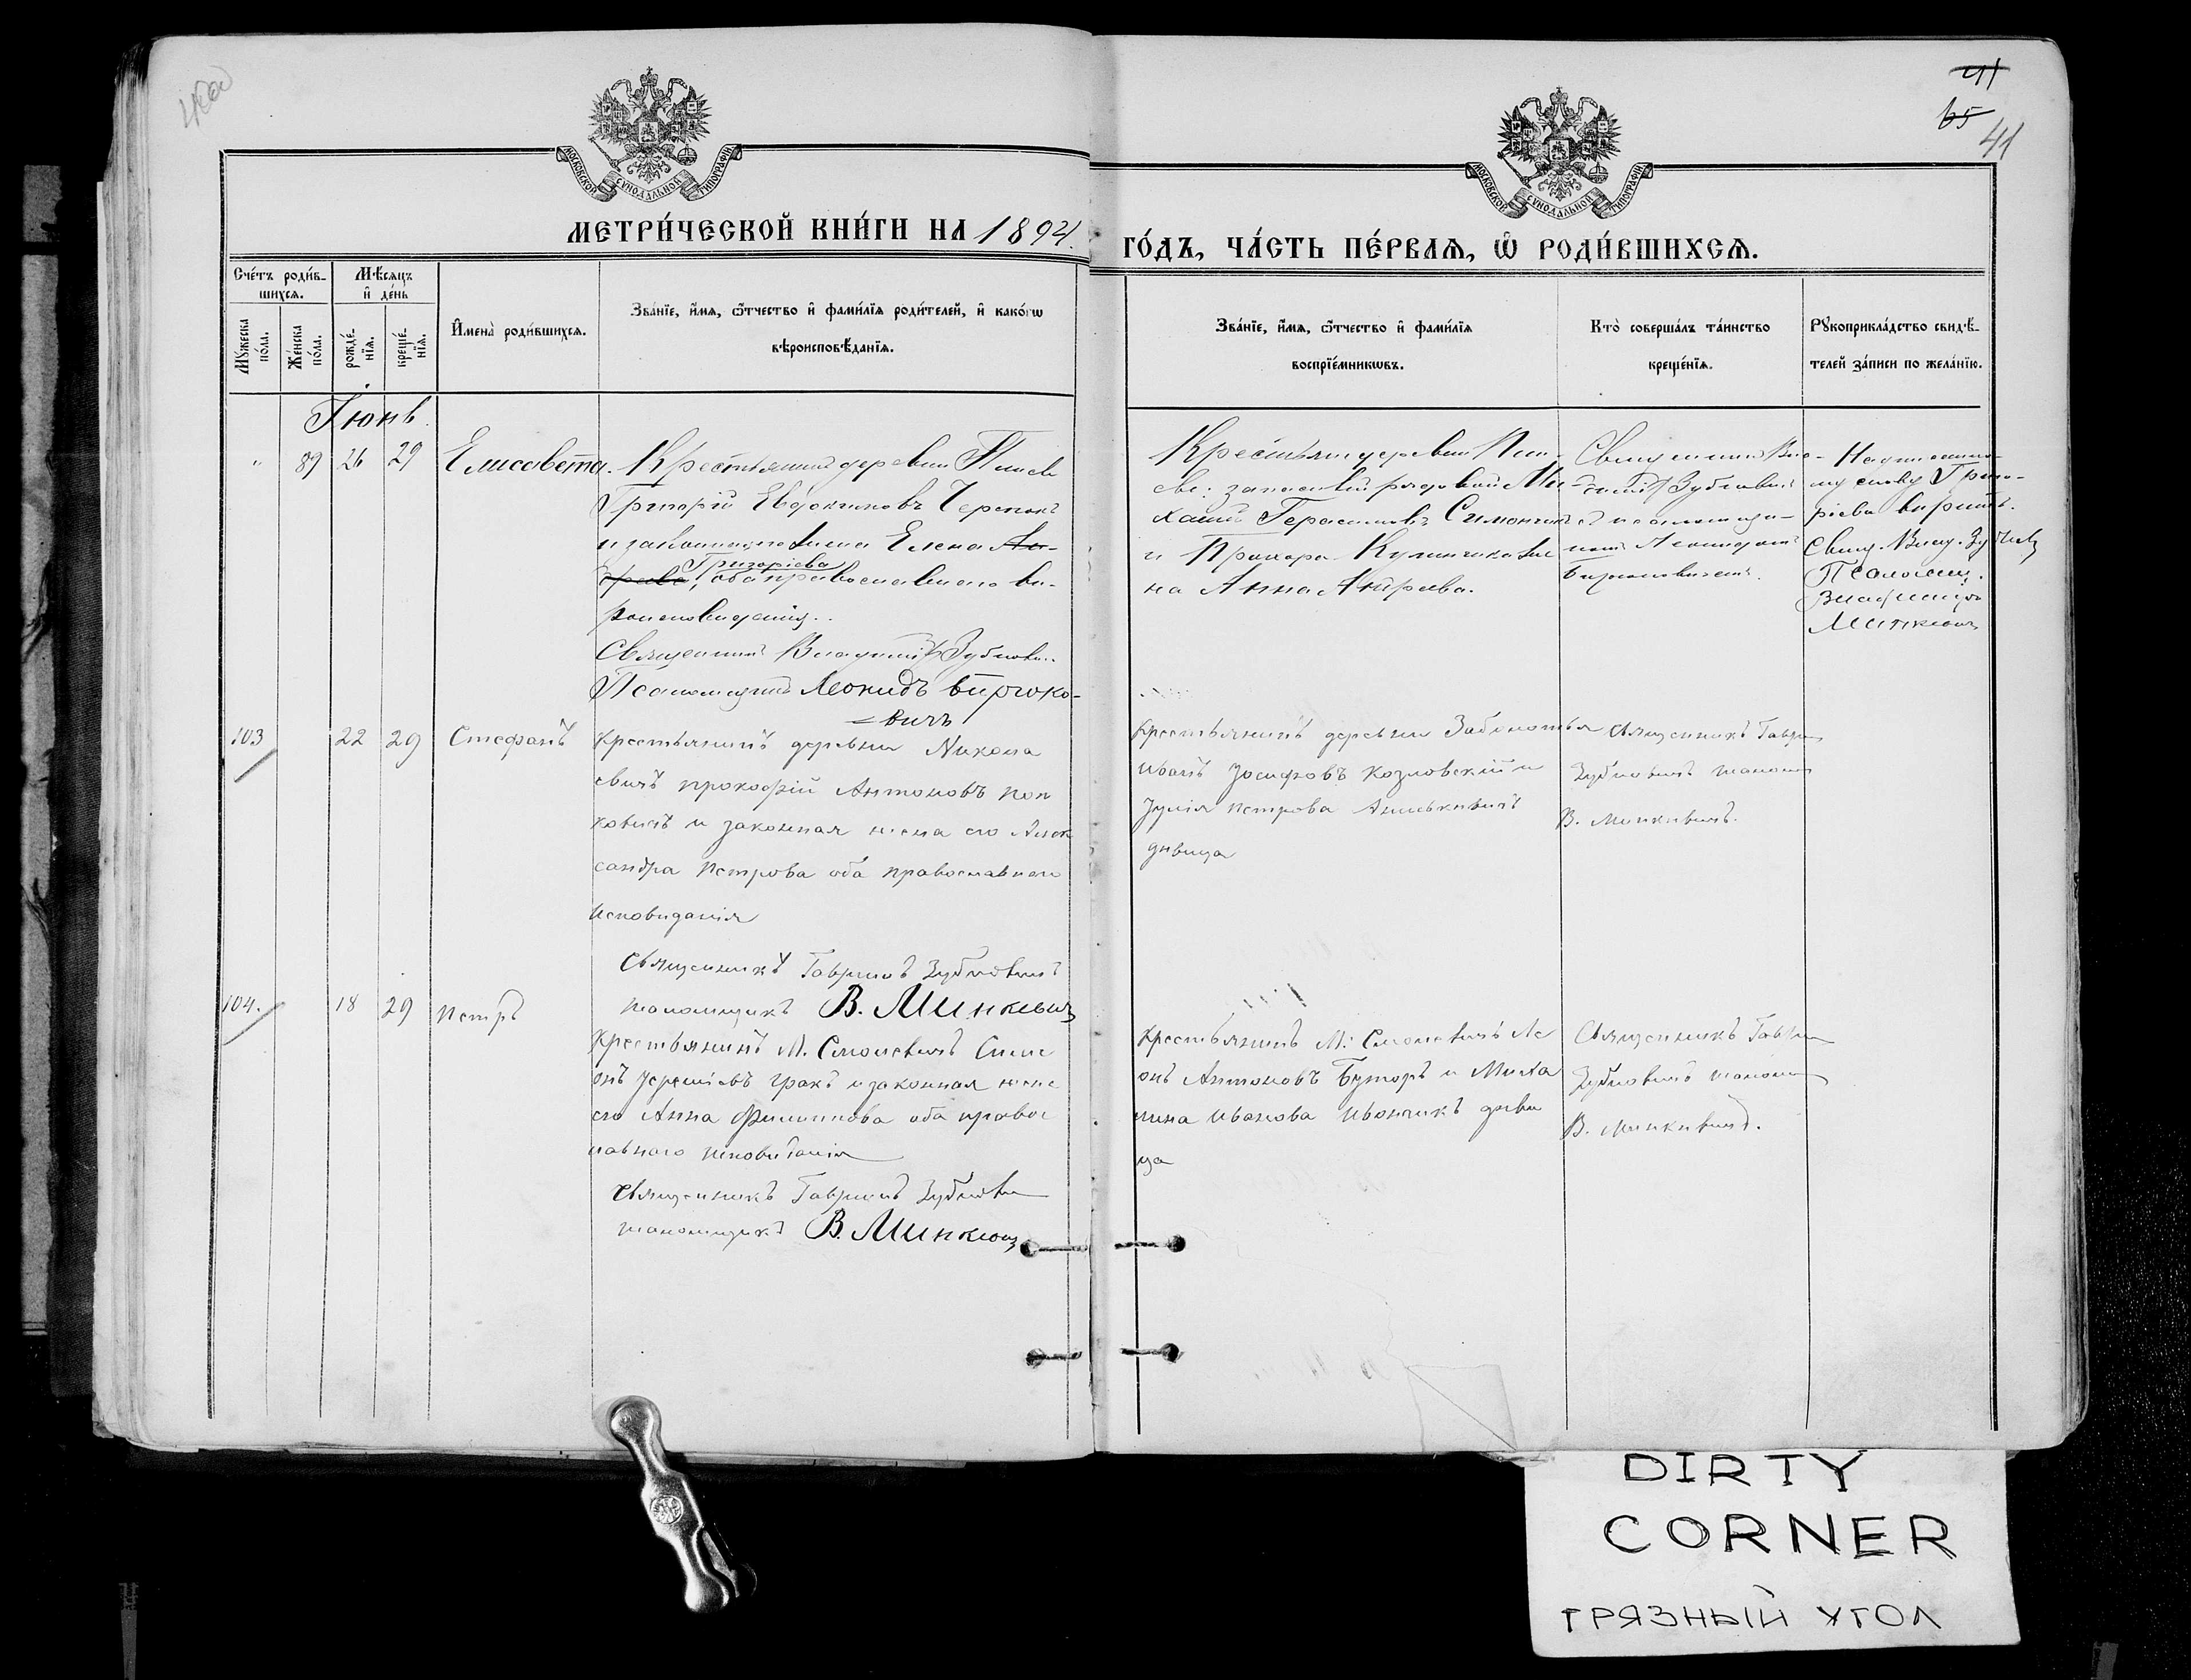 400
41
65
41
МОСКОВСКОЙ СУНОДАЛЬНОЙ ТИПОГРАФІИ
МОСКОВСКОЙ СУНОДАЛЬНОЙ ТИПОГРАФІИ
МЕТРИ́ЧЕСКОЙ КНИ́ГИ НА 1894
ГО́ДЪ, ЧА́СТЬ ПЕ́РВАѦ, Ѡ҆ РОДИ́ВШИХСѦ.
Сче́тъ роди́в-
шихсѧ.
Мѣ́сѧцъ
и҆ де́нь
Мꙋ́жеска по́ла.
Же́нска по́ла.
рожде́-
нїѧ.
креще́-
нїѧ.
И҆мена̀ роди́вшихсѧ.
Зва́нїе, и҆́мѧ, ѻ҆́тчество и҆ фами́лїѧ роди́телей, и҆ како́гѡ
вѣроисповѣ́данїѧ.
Зва́нїе, и҆́мѧ, ѻ҆́тчество и҆ фами́лїѧ
воспрїе́мникѡвъ.
Кто̀ соверша́лъ та́инство
креще́нїѧ.
Рꙋкоприкла́дство свидѣ́-
телей за́писи по жела́нїю.
Іюнь
89 26 29 Елисавета.
Крестьянинъ деревни
Григорій Евдокимовъ Черпакъ
и законная жена Елена Ан-
Григорієва
дреева, оба православнаго вѣ-
роисповѣданія.
Священникъ Владиміръ Зубковичъ
Псаломщикъ Леонидъ Бирюко-
=вичъ
Крестьянинъ деревни
запасный рядовой Ми-
хаилъ Герасимовъ Симончикъ
и Прохора
на Анна Андреева.
Священникъ Вла-
диміръ Зубковичъ
съ псаломщи-
комъ Леонидомъ
Бирюковичемъ.
Надписанно-
му слову Григо-
ріева вѣрить.
Свящ. Влад. Зубкович
Псаломщ.
Владиміръ
Минкевич
103 22 29 Стефанъ
Крестьянинъ деревни Никола
евичъ Прокофій Антоновъ Поп
ковичъ и законная жена его Алек
сандра Петрова оба православнаго
исповѣданія
Священникъ Гавріилъ Зубковичъ
псаломщикъ В. Минкевич
Крестьянинъ деревни Заболотья
Иванъ Іосифовъ Козловскій и
Іулія Петрова Аниськевичъ
дѣвица
Священникъ Гаврі
Зубковичъ псаломщ
В. Минкевичъ.
104. 18 29 Петръ
Крестьянинъ М. Смолевичъ Симе
онъ Іереміевъ Гракъ и законная жена
его Анна Филиппова оба правос
лавнаго исповѣданія
Священникъ Гавріилъ Зубкови
псаломщикъ В. Минкевич
Крестьянинъ М. Смолевичъ Ле
онъ Антоновъ Буторъ и Миха
лина Иванова Иванчикъ дѣви
ца
Священникъ Гаврі
Зубковичъ псаломщ
В. Минкевичъ.
DIRTY
CORNER
ГРЯЗНЫЙ УГОЛ